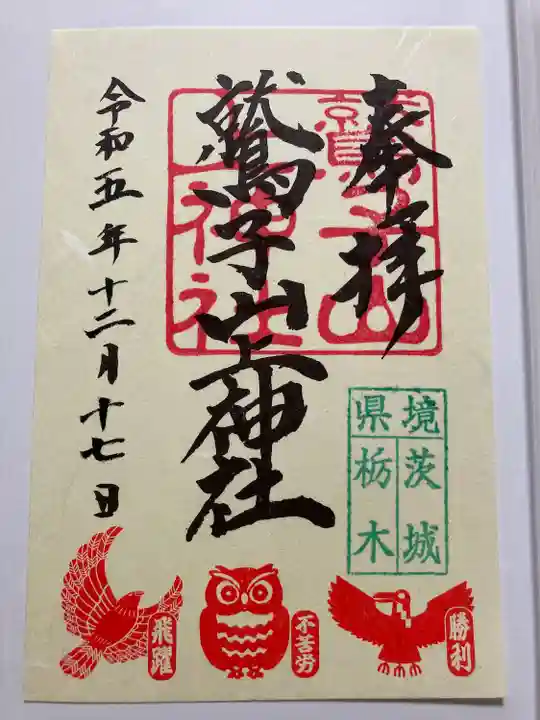 奉拝
鷲子山上神社
令和五年十二月十七日
鷲子山上神社
境 県
茨城
栃木
勝利
不苦労
飛躍